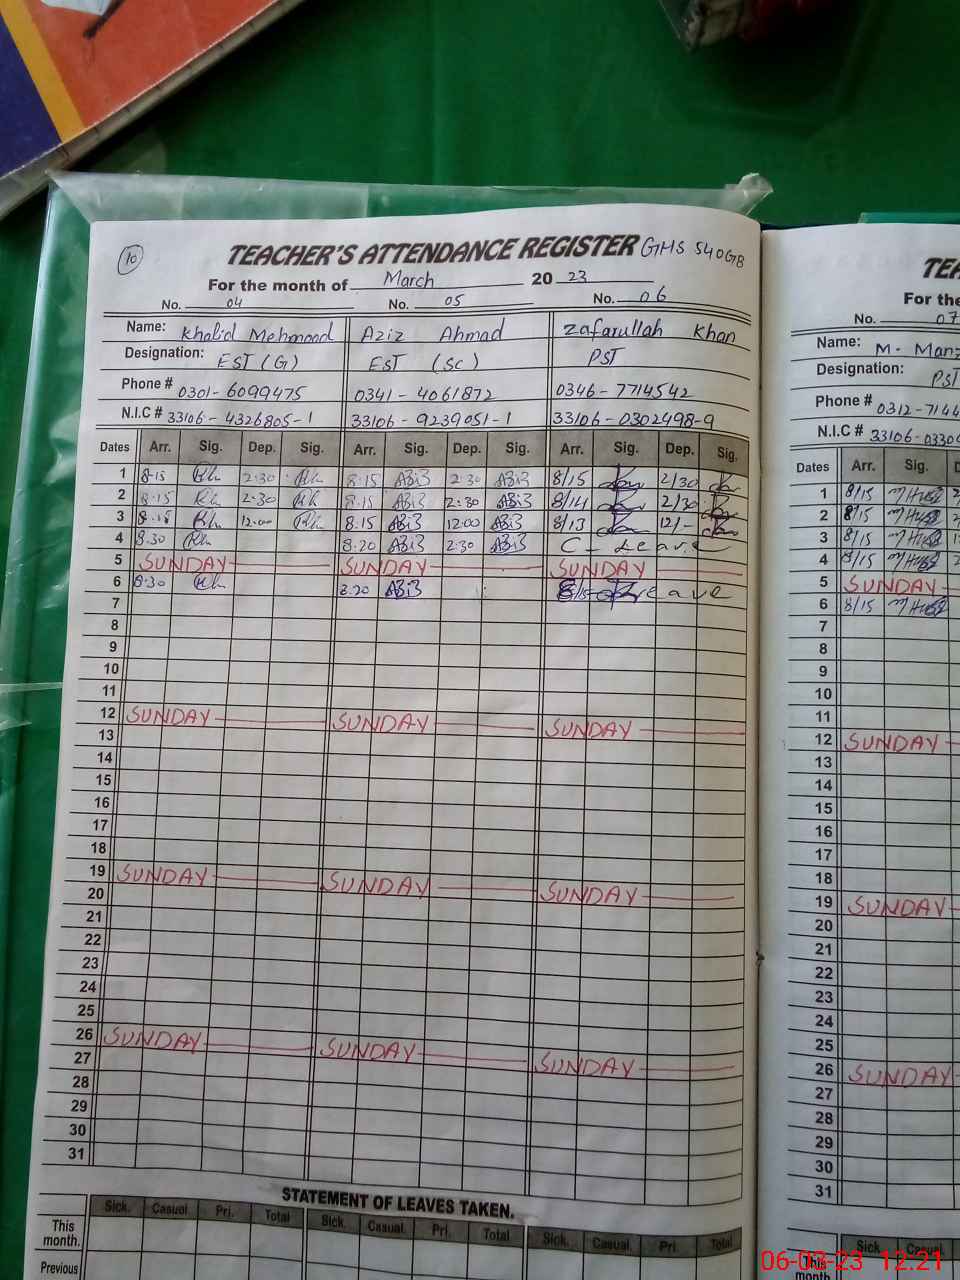 10
TEACHER'S ATTENDANCE REGISTER GHS 540GB
For the month of March 20 23
No. 04 No. 05 No. 06
Name: Khalid Mehmood Aziz Ahmad Zafarullah Khan
Designation: EST (G) EST (SC) PST
Phone # 0301-6099475 0341-4061872 0346-7714542
N.I.C # 33106-4326805-1 33106-9239051-1 33106-0302498-9
Dates Arr. Sig. Dep. Sig. Arr. Sig. Dep. Sig. Arr. Sig. Dep. Sig.
1 8-15 2:30 8:15 2:30 8/15 2/30
2 8:15 2:30 8:15 2:30 8/14 2/30
3 8:15 12:00 8:15 12:00 8/13 12/-
4 8:30 8:20 2:30 C-Leave
5 SUNDAY SUNDAY SUNDAY
6 8:30 8:20 8/15 eave
7
8
9
10
11
12 SUNDAY SUNDAY SUNDAY
13
14
15
16
17
18
19 SUNDAY SUNDAY SUNDAY
20
21
22
23
24
25
26 SUNDAY SUNDAY SUNDAY
27
28
29
30
31
STATEMENT OF LEAVES TAKEN.
Sick. Casual Pri. Total Sick. Casual. Pri. Total Sick. Casual. Pri. Total
This month.
Previous
TEA
For the
No. 07
Name: M. Manz
Designation: PST
Phone # 0312-7144
N.I.C # 33106-0330
Dates Arr. Sig. D
1 8/15
2 8/15
3 8/15
4 8/15
5 SUNDAY
6 8/15
7
8
9
10
11
12 SUNDAY
13
14
15
16
17
18
19 SUNDAY
20
21
22
23
24
25
26 SUNDAY
27
28
29
30
31
Sick Casual
This month
06-03-23 12:21